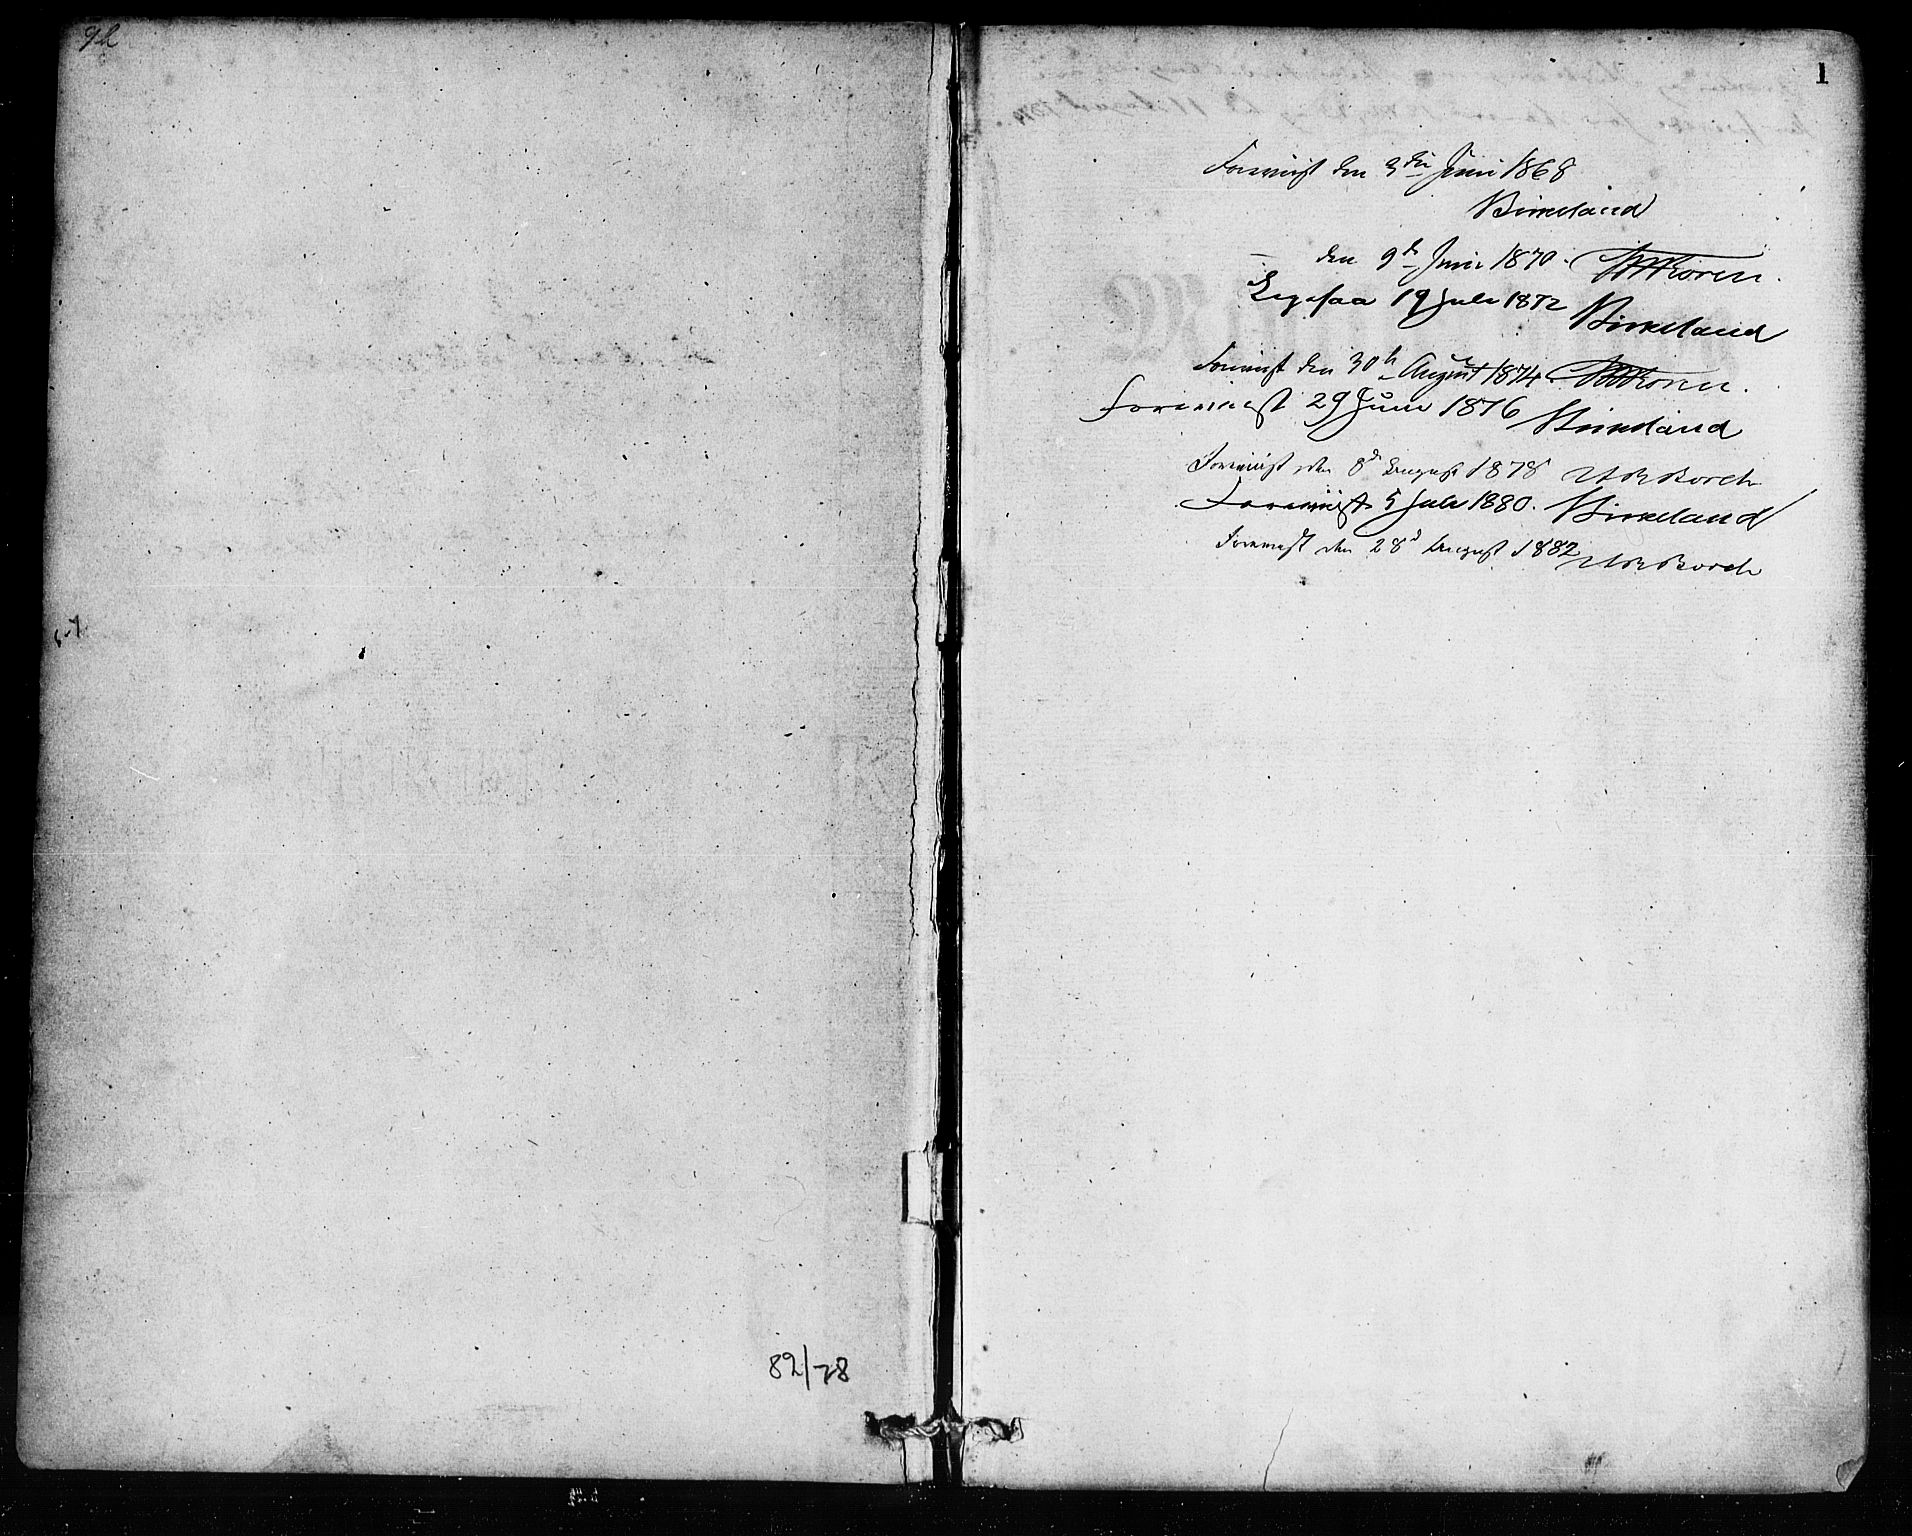 82/78
1
Foreviist den 3die Juni 1868
Birkeland
— den 9de Juni 1870. Koren.
Ligesaa 19 Juli 1872 Birkeland
Foreviist den 30te August 1874. Koren.
Foreviist 29 Juni 1876 Birkeland
Foreviist den 8de August 1878 Borch
Foreviist 5 Juli 1880. Birkeland
Foreviist den 28de August 1882 Borch